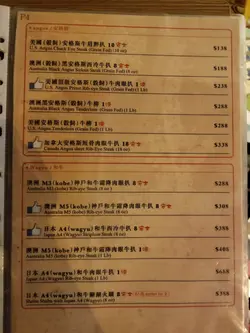 P4
Angus / 安格斯
美洲 (穀飼) 安格斯牛肩胛扒 10安士
U.S. Angus Chuck Eye Steak (Grain Fed) (10 oz) $138
澳洲 (穀飼) 黑安格斯西冷牛扒 8安士
Australia Black Angus Sirloin Steak (Grain Fed) (8 oz) $168
美國安格斯 (穀飼) 牛肉眼扒 1磅
U.S. Angus Prime Rib-eye Steak (Grain Fed) (1 Lb) $288
澳洲黑安格斯 (穀飼) 牛柳 1磅
Australia Black Angus Tenderloin (Grain Fed) (1 Lb) $288
美國安格斯 (穀飼) 牛柳 1磅
U.S. Angus Tenderloin (Grain Fed) (1 Lb) $338
加拿大安格斯短骨肉眼牛扒 18安士
Canada Angus short Rib-Eye Steak (18 oz) $338
Wagyu / 和牛
澳洲 M3(kobe) 神戶和牛霜降肉眼扒 8安士
Australia M3 (Kobe) Rib-eye Steak (8 oz) $288
澳洲 M5(kobe) 神戶和牛霜降肉眼扒 8安士
Australia M5 (Kobe) Rib-eye Steak (8 oz) $308
日本 A4(wagyu) 和牛西冷扒 8安士
Japan A4 (Wagyu) Striploin Steak (8 oz) $388
澳洲 M5(kobe) 神戶和牛霜降肉眼牛扒 1磅
Australia M5 (Kobe) Rib-eye Steak (1 Lb) $486
日本 A4(wagyu) 和牛肉眼牛扒 1磅
Japan A4 (Wagyu) Rib-eye Steak (1 Lb) $668
日本 A4(wagyu) 和牛 8安士
$368